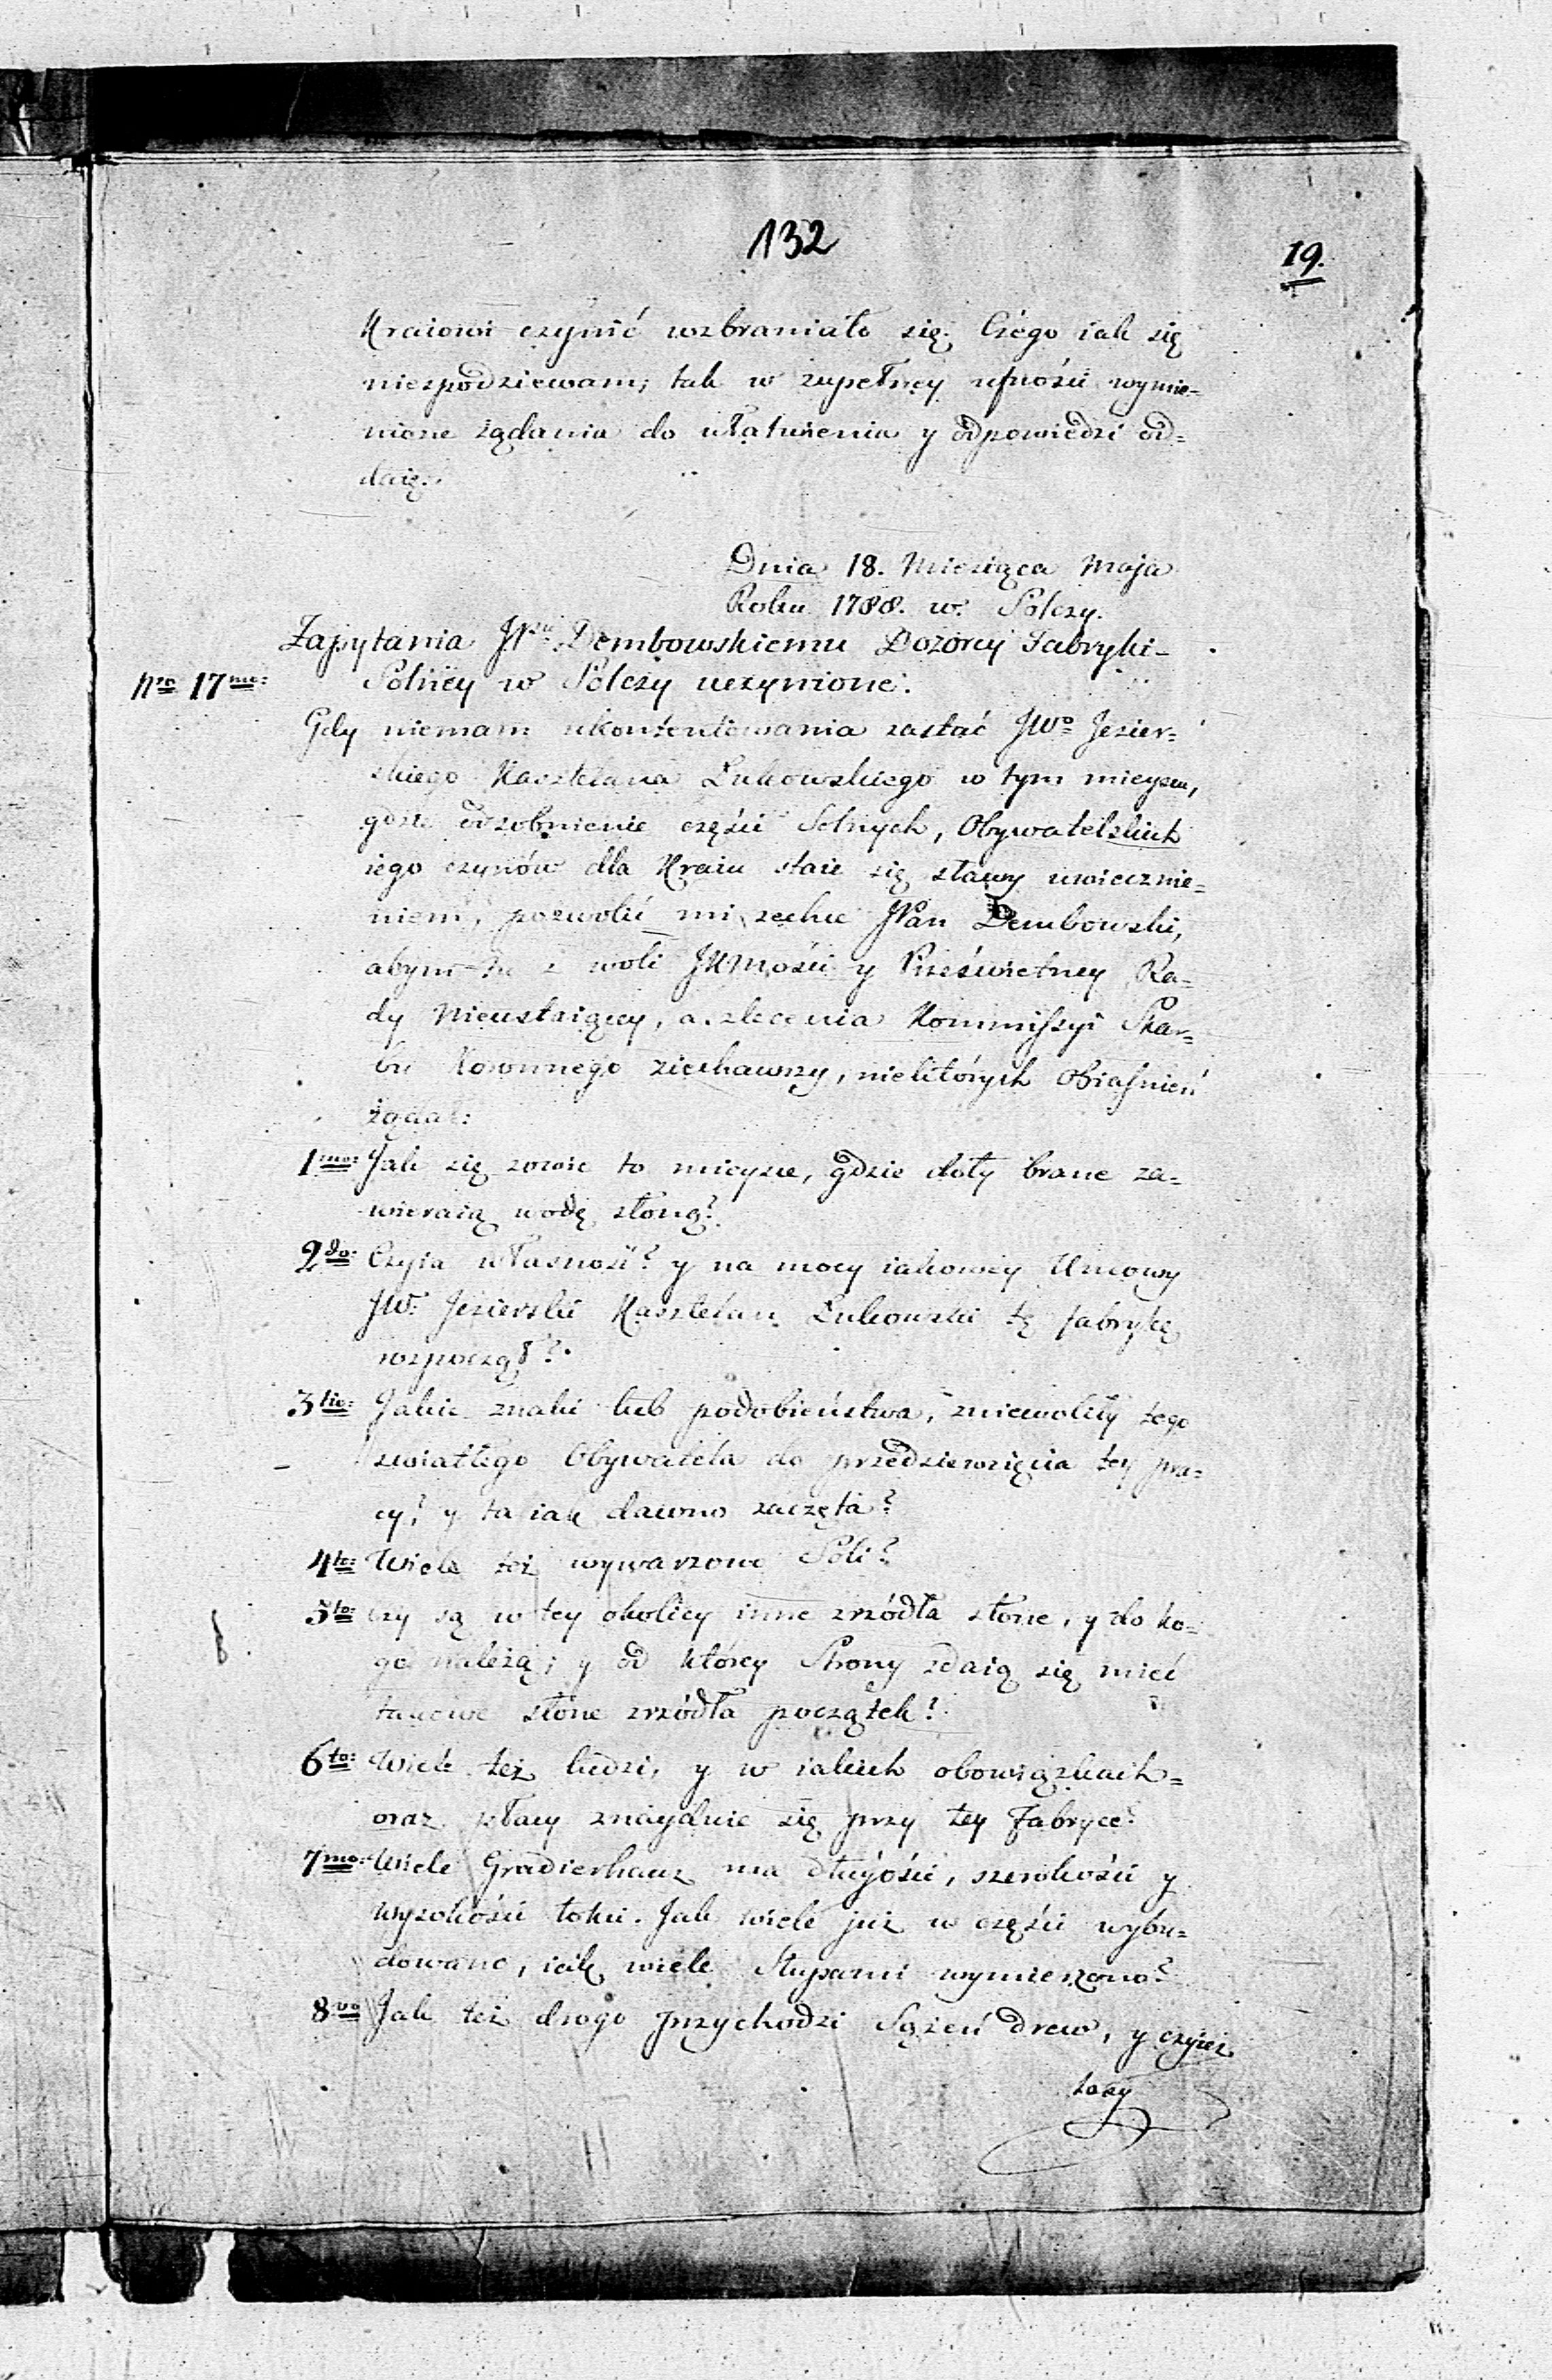 132
19.
Kraiowi czynić wzbraniało się. Czego iak się
niespodziewam; tak w zupełney ufności wymie-
nione żądania do ułatwienia y odpowiedzi od=
daię.
Dnia 18. Miesiąca Maja
Roku 1788. w Solczy.
Zapytania JPu Dembowskiemu Dozorcy Fabryki
Nro 17mo: Solney w Solczy uczynione.
Gdy niemam ukontentowania zastać JWo Jezier=
skiego Kasztelana Łukowskiego w tym mieyscu,
gdzie części Solnych, Obywatelskich
iego czynów dla Kraiu staie się sławy uwiecznie=
niem, pozwolić mi zechce JPan Dembowski,
abym tu z woli JKMości y Prześwietney Ra=
dy Nieustaiącey, a zlecenia Kommissyi Skar=
bu Koronnego ziechawszy, niektórych obiaśnień
żądał:
1mo: Jak się zowie to mieysce, gdzie doły brane za=
wieraią wodę słoną?
2do: Czyia własność? y na mocy iakowey Umowy
JW. Jezierski Kasztelan Łukowski tę fabrykę
rozpoczął?
3tio: Jakie znaki lub podobieństwa, zniewoliły tego
światłego Obywatela do przedziewzięcia tey pra=
cy? y ta iak dawno zaczęta?
4to: Wiele też wywarzono Soli?
5to: czy są w tey okolicy inne zrzódła słone, y do ko=
go należą; y od którey Strony zdaią się mieć
takowe słone zrzódła początek?
6to: Wiele też ludzi, y w iakich obowiązkach=
oraz płacy znayduie się przy tey Fabryce?
7mo: Wiele Gradierhauz ma długości, szerokości y
wysokości łokci. Jak wiele już w części wybu=
dowano, iak wiele Słupami wymierzono?
8vo Jak też drogo przychodzi Sążeń drew, y czyież